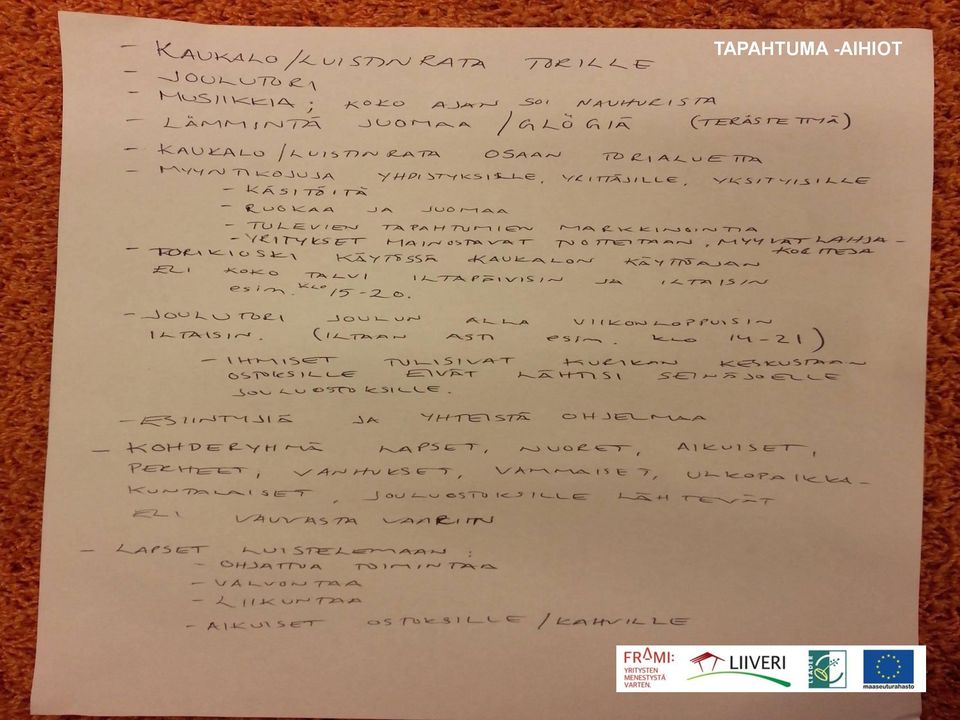 TAPAHTUMA -AIHIOT
- KAUKALO/LUISTINRATA TORILLE
- JOULUTORI
- MUSIIKKIA; KOKO AJAN SOI NAUHURISTA
- LÄMMINTÄ JUOMAA /GLÖGIÄ (TERÄSTETTYÄ)
- KAUKALO/LUISTINRATA OSAAN TORIALUETTA
- MYYNTIKOJUJA YHDISTYKSILLE, YRITTÄJILLE, YKSITYISILLE
- KÄSITÖITÄ
- RUOKAA JA JUOMAA
- TULEVIEN TAPAHTUMIEN MARKKINOINTIA
- YRITYKSET MAINOSTAVAT TUOTTEITAAN, MYYVÄT LAHJA-
KORTTEJA
- TORIKIOSKI KÄYTÖSSÄ KAUKALON KÄYTTÖAJAN
ELI KOKO TALVI ILTAPÄIVISIN JA ILTAISIN
esim. klo 15-20.
- JOULUTORI JOULUN ALLA VIIKONLOPPUISIN
ILTAISIN. (ILTAAN ASTI esim. KLO 14-21)
- IHMISET TULISIVAT KURIKAN KESKUSTAAN
OSTOKSILLE EIVÄT LÄHTISI SEINÄJOELLE
JOULUOSTOKSILLE.
- ESIINTYJIÄ JA YHTEISTÄ OHJELMAA
- KOHDERYHMÄ LAPSET, NUORET, AIKUISET,
PERHEET, VANHUKSET, VAMMAISET, ULKOPAIKKA-
KUNTALAISET, JOULUOSTOKSILLE LÄHTEVÄT
ELI VAUVASTA VAARIIN
- LAPSET LUISTELEMAAN:
- OHJATTUA TOIMINTAA
- VALVONTAA
- LIIKUNTAA
- AIKUISET OSTOKSILLE/KAHVILLE
FRAMI:
YRITYSTEN
MENESTYSTÄ
VARTEN.
LIIVERI
LEADER
maaseuturahasto